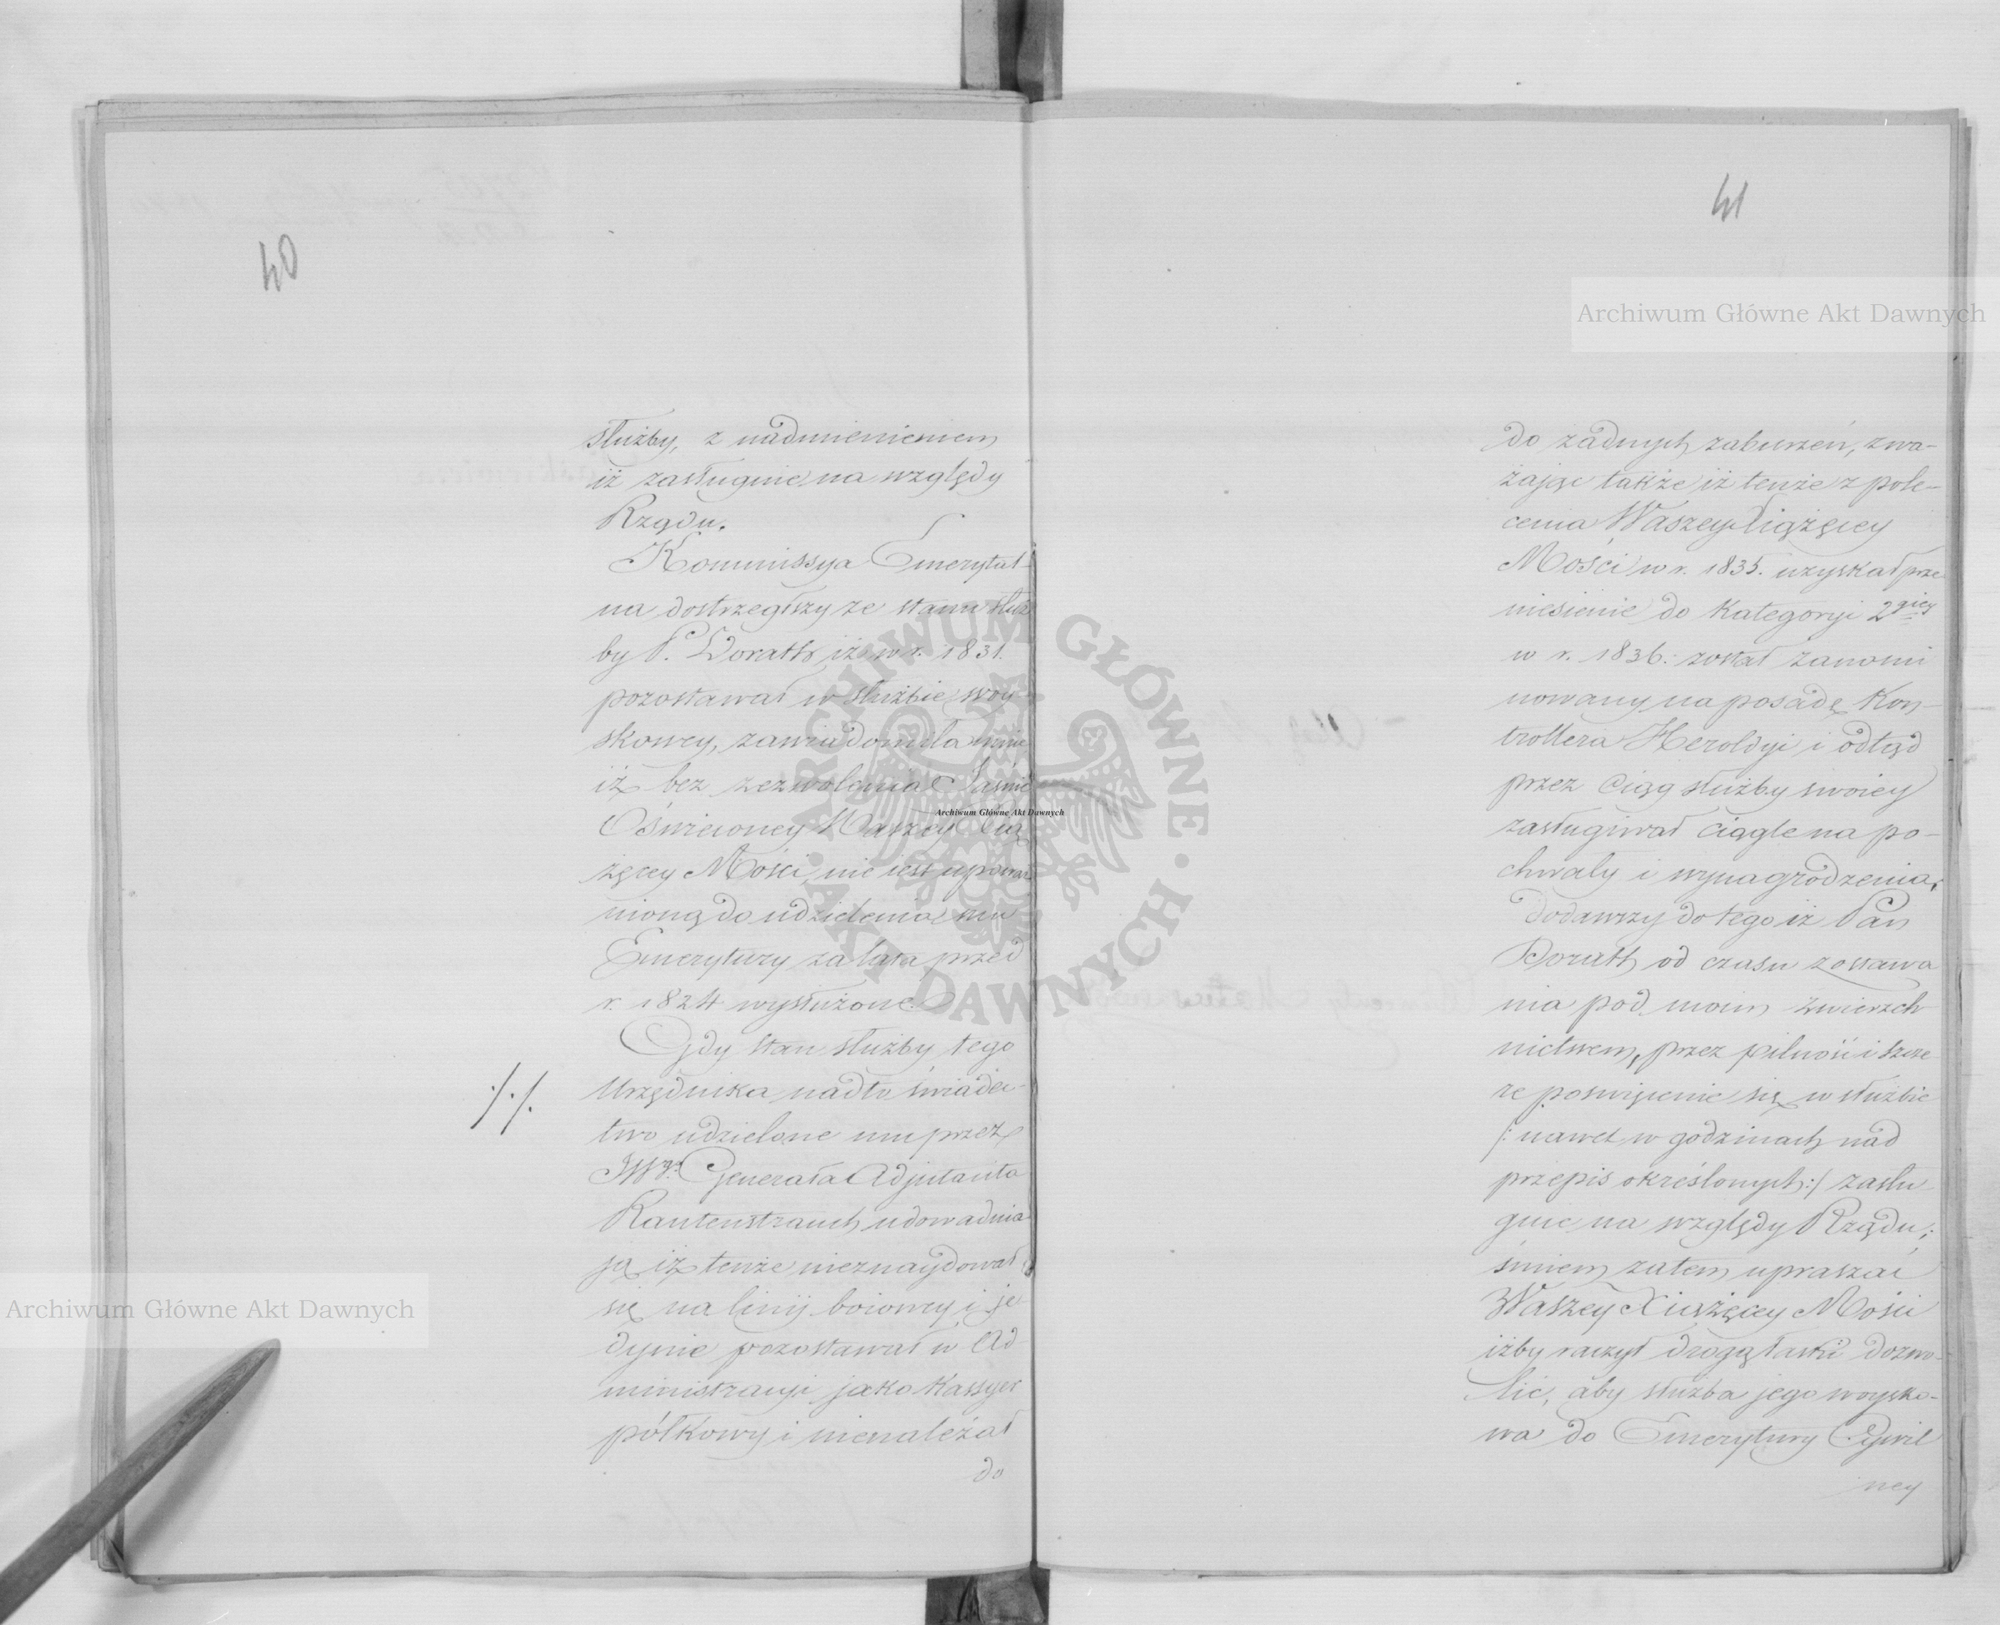 40
służby, z nadmienieniem
iż zasługuie na względy
Rządu.
Kommissya Emerytal-
na dostrzegłszy ze stanu służ
by P. Worath, iż w r. 1831.
pozostawał w służbie woy-
skowey, zawiadomiła mnie
iż bez zezwolenia Jaśnie
Oświeconey Waszey Xią
żęcey Mości, nie iest upoważ
nioną do udzielenia mu
Emerytury za lata przed
r. 1824 wysłużone.
Gdy stan służby tego
./././ Urzędnika nadto świadec-
two udzielone mu przez
JWgo Generała Adjutanta
Rautenstrauch, udowadnia
ją iż tenże nieznaydował
się na linij boiowey i je-
dynie pozostawał w Ad
ministracyi jako Kassyer
półkowy i nienależał
do
41
do żadnych zaburzeń, zwa-
żając także iż tenże z pole-
cenia Waszey Xiążęcey
Mości w r. 1835. uzyskał prze
niesienie do Kategoryi 2giey
w r. 1836. został zanomi
nowany na posadę Kon-
trollera Heroldyi i odtąd
przez ciąg służby swoiey
zasługiwał ciągle na po-
chwały i wynagrodzenia;
Dodawszy do tego iż Pan
Worath od czasu zostawa
nia pod moim zwierzch
nictwem, przez pilność i szcze
re poświęcenie się w służbie
/: nawet w godzinach nad
przepis określonych :/ zasłu-
guie na względy Rządu;
śmiem zatem upraszać
Waszey Xiążęcey Mości
iżby raczył drogą łaski dozwo-
lić, aby służba jego woysko-
wa do Emerytury Cywil
ney
Archiwum Główne Akt Dawnych
Archiwum Główne Akt Dawnych
Archiwum Główne Akt Dawnych
ARCHIWUM GŁÓWNE · AKT DAWNYCH ·